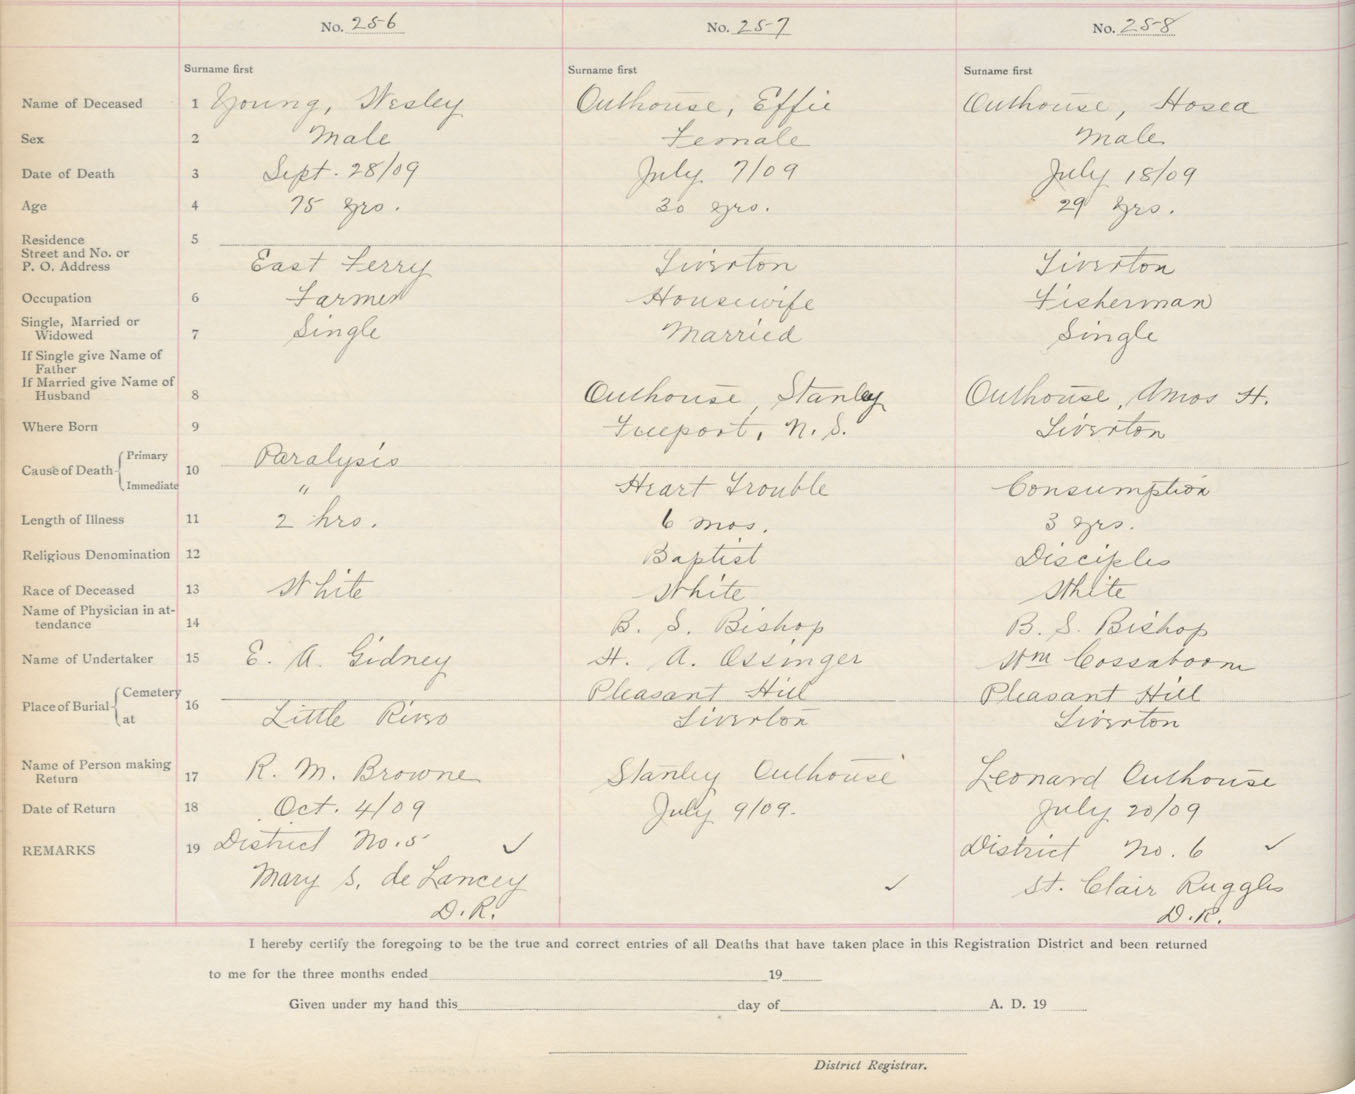 No. 256 No. 257 No. 258
Surname first Surname first Surname first
Name of Deceased 1 Young, Wesley Outhouse, Effie Outhouse, Hosea
Sex 2 Male Female Male
Date of Death 3 Sept. 28/09 July 7/09 July 18/09
Age 4 75 yrs. 30 yrs. 29 yrs.
Residence 5
Street and No. or
P. O. Address East Ferry Tiverton Tiverton
Occupation 6 Farmer Housewife Fisherman
Single, Married or
Widowed 7 Single Married Single
If Single give Name of
Father
If Married give Name of
Husband 8 Outhouse, Stanley Outhouse, Amos H.
Where Born 9 Freeport, N. S. Tiverton
Cause of Death Primary 10 Paralysis
Immediate " Heart Trouble Consumption
Length of Illness 11 2 hrs. 6 mos. 3 yrs.
Religious Denomination 12 Baptist Disciples
Race of Deceased 13 White White White
Name of Physician in at-
tendance 14 B. S. Bishop B. S. Bishop
Name of Undertaker 15 E. A. Gidney H. A. Ossinger Wm Cossaboom
Place of Burial Cemetery 16 Pleasant Hill Pleasant Hill
at Little River Tiverton Tiverton
Name of Person making
Return 17 R. M. Browne Stanley Outhouse Leonard Outhouse
Date of Return 18 Oct. 4/09 July 9/09. July 20/09
REMARKS 19 District No. 5 ✓ District No. 6 ✓
Mary S. de Lancey ✓ St. Clair Ruggles
D. R. D. R.
I hereby certify the foregoing to be the true and correct entries of all Deaths that have taken place in this Registration District and been returned
to me for the three months ended 19
Given under my hand this day of A. D. 19
District Registrar.